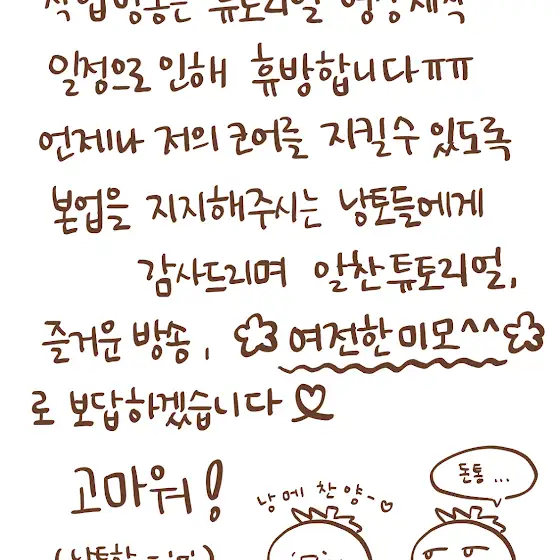 작업방송은 튜토리얼 영상제작
일정으로 인해 휴방합니다ㅠㅠ
언제나 저의 코어를 지킬수 있도록
본업을 지지해주시는 낭토들에게
감사드리며 알찬 튜토리얼,
즐거운 방송, 여전한 미모^^
로 보답하겠습니다♡
고마워!
낭메찬양~♡
돈통...